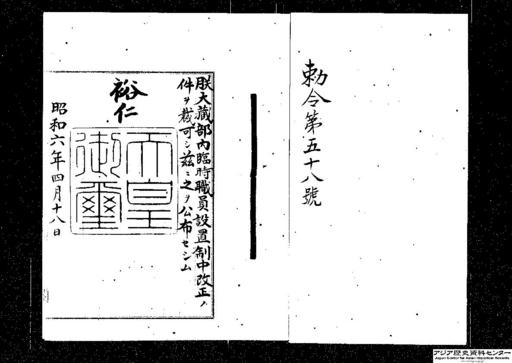 勅令第五十八號
朕大藏部内臨時職員設置制中改正ノ
件ヲ裁可シ茲ニ之ヲ公布セシム
裕仁
天皇
御璽
昭和六年四月十八日
アジア歴史資料センター
Japan Center for Asian Historical Records